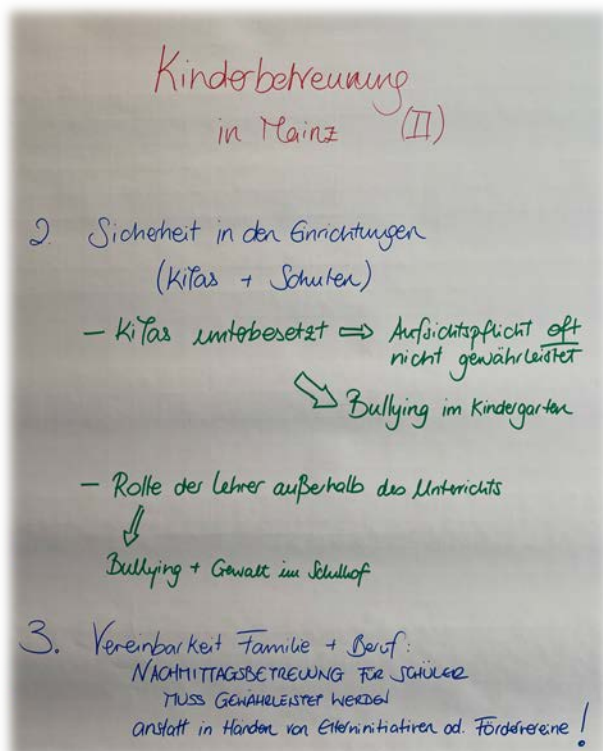 Kinderbetreuung
in Mainz (II)
2. Sicherheit in den Einrichtungen
(Kitas + Schulen)
– Kitas unterbesetzt ⇒ Aufsichtspflicht oft
nicht gewährleistet
⇘ Bullying im Kindergarten
– Rolle der Lehrer außerhalb des Unterrichts
⇓
Bullying + Gewalt im Schulhof
3. Vereinbarkeit Familie + Beruf:
NACHMITTAGSBETREUUNG FÜR SCHÜLER
MUSS GEWÄHRLEISTET WERDEN
anstatt in Händen von Elterninitiativen od. Fördervereine!